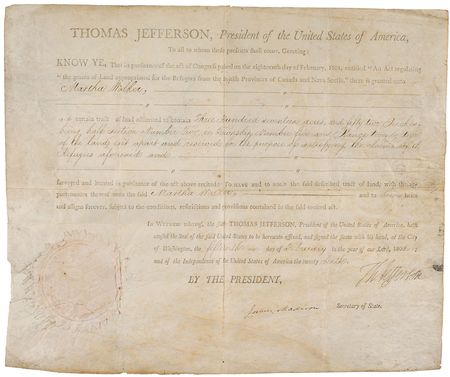 THOMAS JEFFERSON, President of the United States of America,
To all to whom these presents shall come, Greeting:
KNOW YE, That in pursuance of the act of Congress passed on the eighteenth day of February, 1801, entitled "An Act regulating
"the grants of Land appropriated for the Refugees from the British Provinces of Canada and Nova Scotia," there is granted unto
Martha Walker,
a certain tract of land estimated to contain Three Hundred seventeen acres, and fifty two
being half section Number Two, in Township Number five and Range twenty two
of the lands set apart and reserved for the purpose of satisfying the claims of the
Refugees aforesaid and
surveyed and located in pursuance of the act above recited: To have and to hold the said described tract of land, with the
appurtenances thereof unto the said Martha Walker and to heirs
and assigns forever, subject to the conditions, restrictions and provisions contained in the said recited act.
In Witness whereof, the said THOMAS JEFFERSON, President of the United States of America, hath
caused the seal of the said United States to be hereunto affixed, and signed the same with his hand, at the City
of Washington, the fifteenth day of February in the year of our Lord, 180
and of the Independence of the United States of America the twenty sixth.
BY THE PRESIDENT,
Th Jefferson
James Madison Secretary of State.